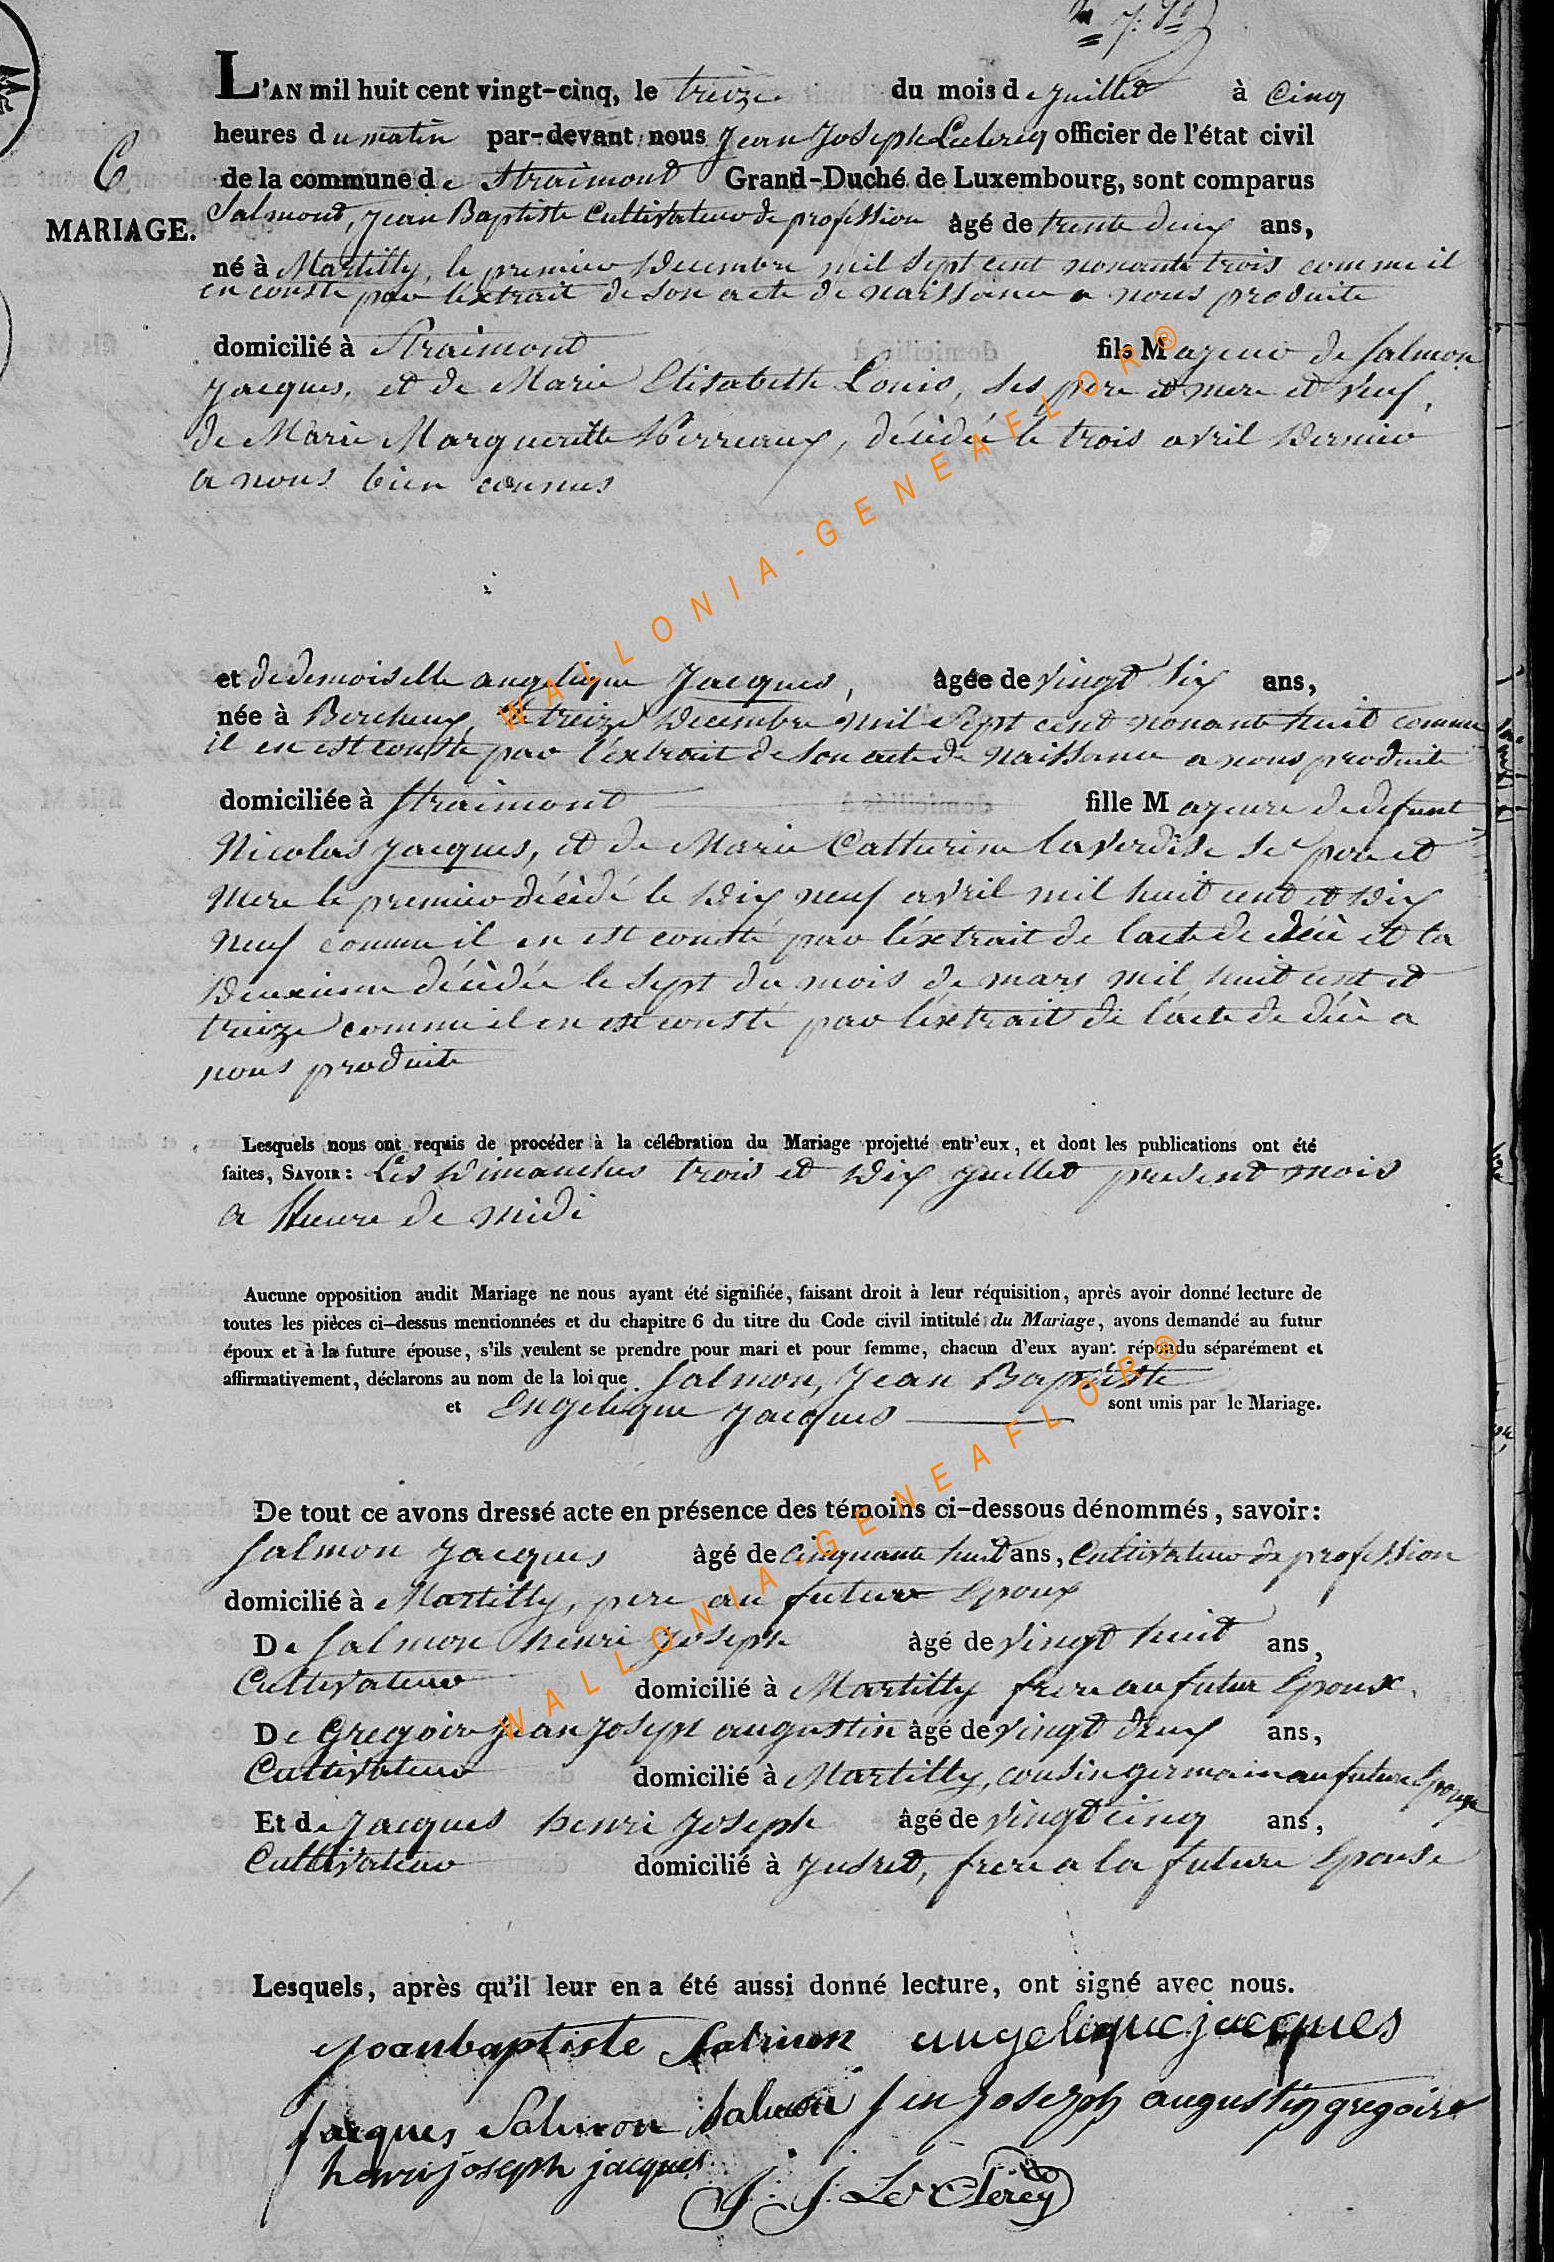 L'AN mil huit cent vingt-cinq, le treize du mois de juillet à Cinq
heures du matin par-devant nous Jean Joseph Leclercq officier de l'état civil
de la commune de Straimont Grand-Duché de Luxembourg, sont comparus
6
MARIAGE.
Salmont, Jean Baptiste Cultivateur de profession âgé de trente deux ans,
né à Martilly, le premier Decembre mil sept cent nonante trois comme il
en conste par l'extrait de son acte de naissance a nous produite
domicilié à Straimont fils Majeur de Salmon
Jacques, et de Marie Elisabeth Louis, ses pere et mere et veuf,
de Marie Marguerite Pierreaux, décédée le trois avril Dernier
a nous bien connus
et de demoiselle angelique Jacques, âgée de vingt six ans,
née à Bercheux, le treize Decembre mil sept cent nonante huit comme
il en est consté par l'extrait de son acte de Naissance a nous produite
domiciliée à Straimont fille Majeure de defunt
Nicolas Jacques, et de Marie Catherine Laverdise ses pere et
Mere le premier décédé le Dix neuf avril mil huit cent et Dix
Neuf comme il en est consté par l'extrait de l'acte de décè et la
Deuxieme décédée le sept du mois de mars mil huit cent et
treize comme il en est consté par l'extrait de l'acte de décè a
nous produite
Lesquels nous ont requis de procéder à la célébration du Mariage projetté entr'eux, et dont les publications ont été
faites, SAVOIR : Les Dimanches trois et Dix juillet present mois
a Heure de midi
Aucune opposition audit Mariage ne nous ayant été signifiée, faisant droit à leur réquisition, après avoir donné lecture de
toutes les pièces ci-dessus mentionnées et du chapitre 6 du titre du Code civil intitulé du Mariage, avons demandé au futur
époux et à la future épouse, s'ils veulent se prendre pour mari et pour femme, chacun d'eux ayant répondu séparément et
affirmativement, déclarons au nom de la loi que Salmon, Jean Baptiste
et Engelique Jacques sont unis par le Mariage.
De tout ce avons dressé acte en présence des témoins ci-dessous dénommés, savoir :
Salmon Jacques âgé de cinquante huit ans, Cultivateur de profession
domicilié à Martilly, pere au futur Epoux
De Salmon henri Joseph âgé de vingt huit ans,
Cultivateur domicilié à Martilly frere au futur Epoux.
De Gregoire Jean Joseph augustin âgé de vingt deux ans,
Cultivateur domicilié à Martilly, cousin germain au future Epoux
Et de Jacques henri Joseph âgé de vingt cinq ans,
Cultivateur domicilié à Jusret, frere a la future Epouse
Lesquels, après qu'il leur en a été aussi donné lecture, ont signé avec nous.
Joanbaptiste Salmon angelique jacques
Jacques Salmon Salmon J en Joseph augustin gregoire
henri joseph jacques
J. J. Le Clercq
WALLONIA-GENEAFLOR®
WALLONIA-GENEAFLOR®